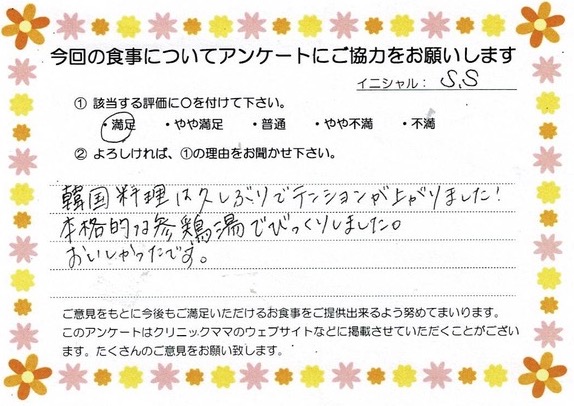 今回の食事についてアンケートにご協力をお願いします
イニシャル： S.S
① 該当する評価に○を付けて下さい。
・満足 ・やや満足 ・普通 ・やや不満 ・不満
② よろしければ、①の理由をお聞かせ下さい。
韓国料理は久しぶりでテンションが上がりました！
本格的な参鶏湯でびっくりしました。
おいしかったです。
ご意見をもとに今後もご満足いただけるお食事をご提供出来るよう努めてまいります。
このアンケートはクリニックママのウェブサイトなどに掲載させていただくことがござい
ます。たくさんのご意見をお願い致します。